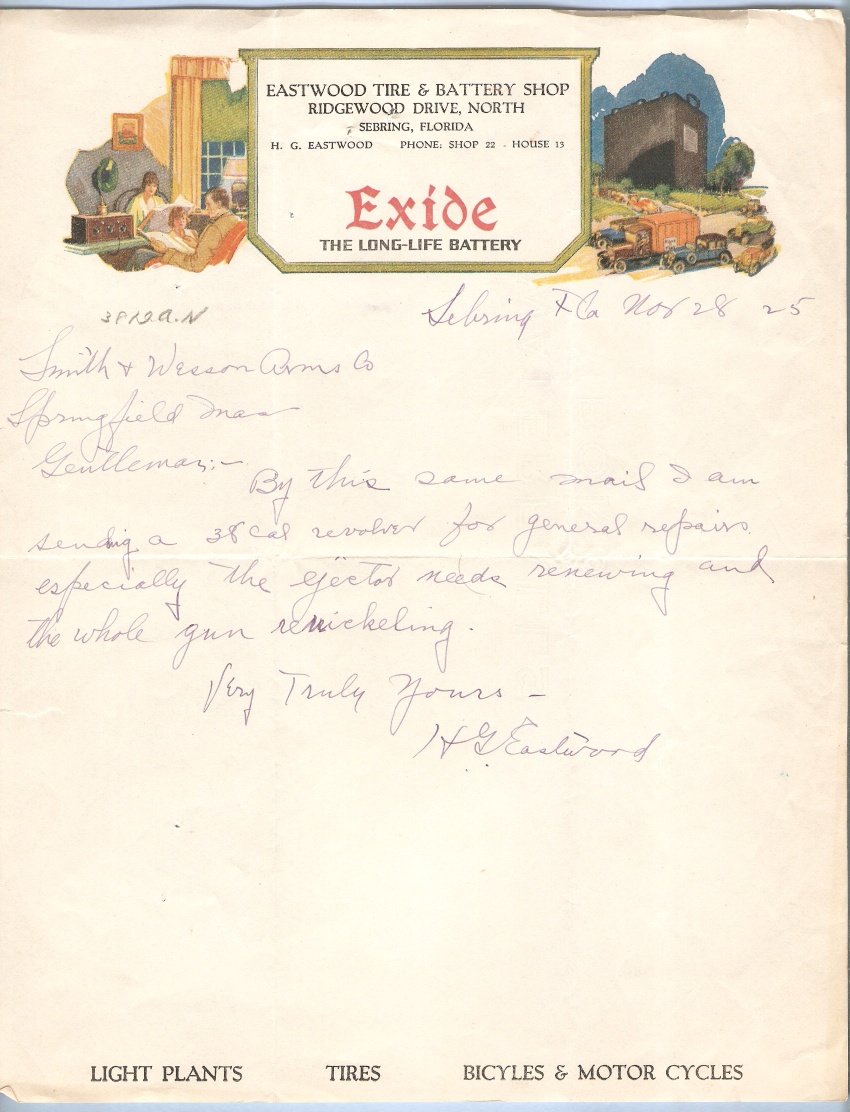 EASTWOOD TIRE & BATTERY SHOP
RIDGEWOOD DRIVE, NORTH
SEBRING, FLORIDA
H. G. EASTWOOD PHONE: SHOP 22 - HOUSE 13
Exide
THE LONG-LIFE BATTERY
Sebring Fla Nov 28 25
Smith & Wesson Arms Co
Springfield Mass
Gentleman;-
By this same mail I am
sending a 38 cal revolver for general repairs.
especially the ejector needs renewing and
the whole gun renickeling.
Very Truly Yours -
H.G. Eastwood
LIGHT PLANTS TIRES BICYLES & MOTOR CYCLES